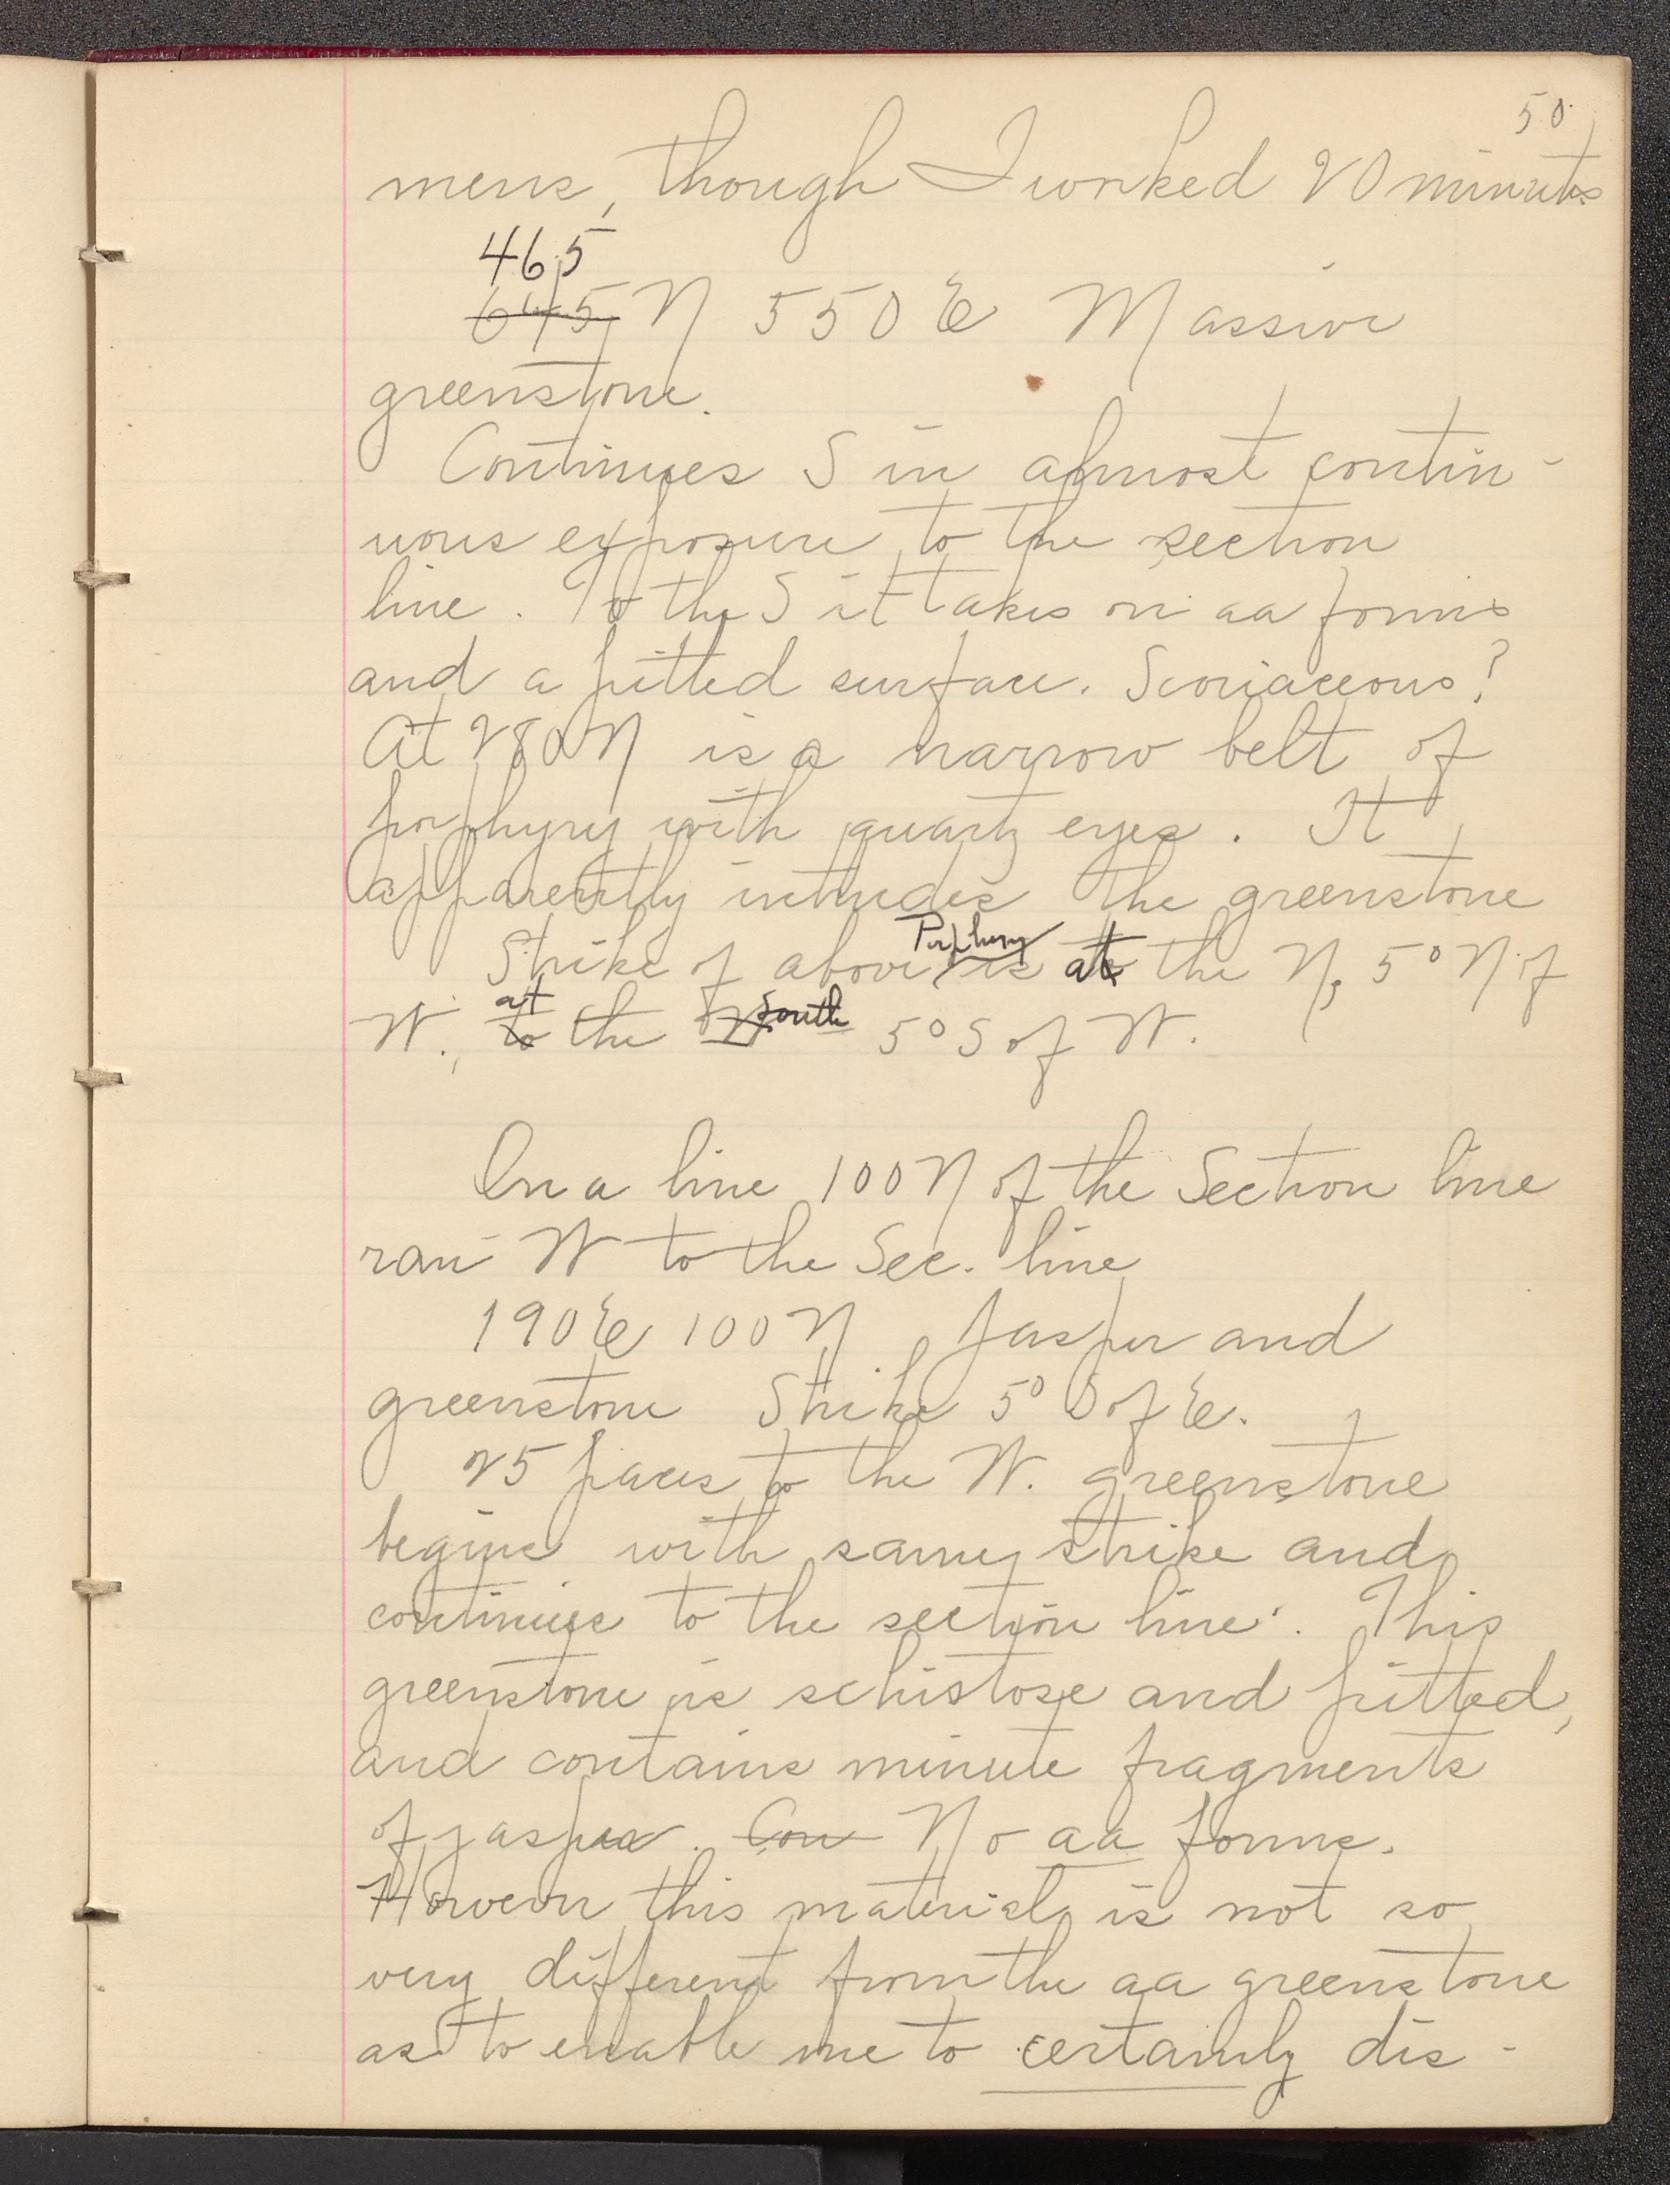 50
mens, though I worked 20 minutes
465
645 N 550 E Massive
greenstone.
Continues S in almost contin-
uous exposure to the section
line. To the S it takes on aa forms
and a pitted surface. Scoriaceous?
At 280 N is a narrow belt of
porphyry with quartz eyes. It
apparently intrudes the greenstone
Porphyry
Strike of above is at the N, 5° N of
at south
W., to the N 5° S of W.
On a line 100 N of the Section line
ran W to the Sec. line
190 E 100 N Jasper and
greenstone Strike 5° S of E.
25 paces to the W. greenstone
begins with same strike and
continues to the section line. This
greenstone is schistose and pitted,
and contains minute fragments
of jasper. Con No aa forms.
However this material is not so
very different from the aa greenstone
as to enable me to certainly dis-